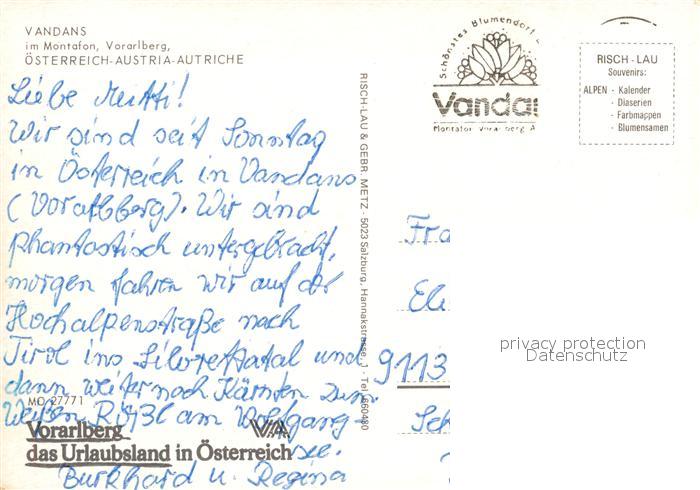 VANDANS
im Montafon, Vorarlberg,
ÖSTERREICH-AUSTRIA-AUTRICHE
Liebe Mutti!
Wir sind seit Sonntag
in Österreich in Vandans
(Vorarlberg). Wir sind
phantastisch untergebracht,
morgen fahren wir auf der
Hochalpenstraße nach
Tirol ins Silvrettatal und
dann weiter nach Kärnten zum
Weißen Rößl am Wolfgang-
see.
Burkhard u. Regina
MO 27771
Vorarlberg
das Urlaubsland in Österreich
VIA
RISCH-LAU & GEBR. METZ - 5023 Salzburg, Hannakstrasse, 1 - Tel. 660480
Schönstes Blumendorf
Vandan
Montafon Vorarlberg A
RISCH - LAU
Souvenirs:
ALPEN - Kalender
- Diaserien
- Farbmappen
- Blumensamen
Fra
Eli
9113
Sch
privacy protection
Datenschutz